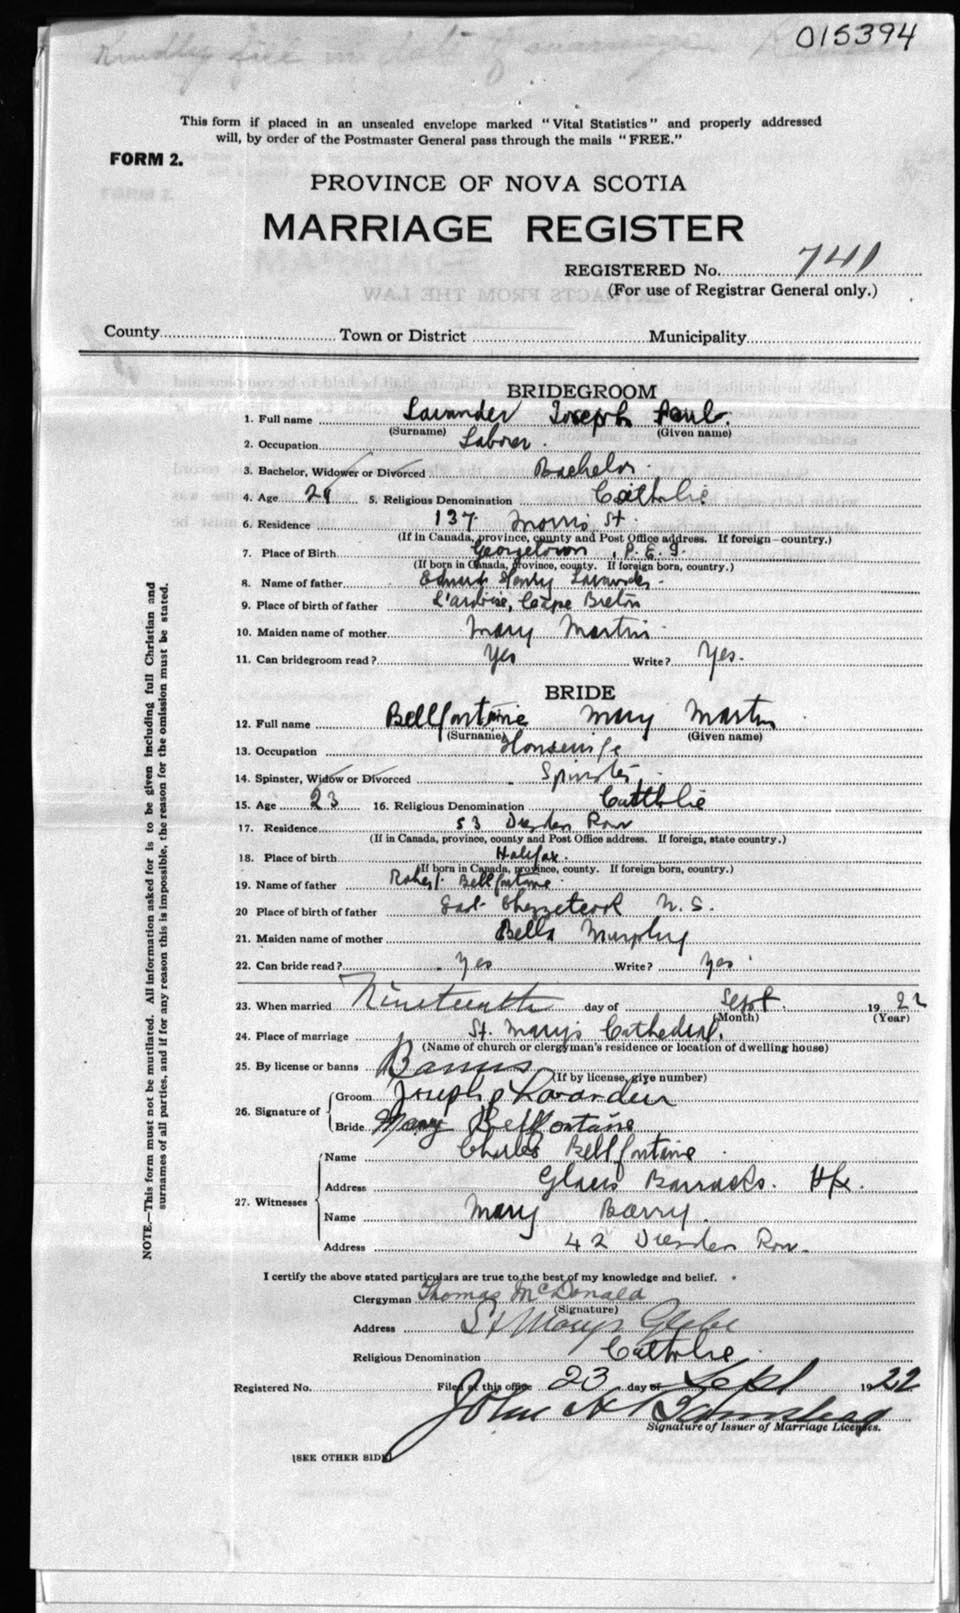 015394
Kindly fill in date of marriage
This form if placed in an unsealed envelope marked "Vital Statistics" and properly addressed
will, by order of the Postmaster General pass through the mails "FREE."
FORM 2.
PROVINCE OF NOVA SCOTIA
MARRIAGE REGISTER
REGISTERED No. 741
(For use of Registrar General only.)
County Town or District Municipality
BRIDEGROOM
1. Full name Lavander Joseph Paul.
(Surname) (Given name)
2. Occupation Laborer.
3. Bachelor, Widower or Divorced Bachelor.
4. Age 21 5. Religious Denomination Catholic
6. Residence 137 Morris St.
(If in Canada, province, county and Post Office address. If foreign—country.)
7. Place of Birth Georgetown, P.E.I.
(If born in Canada, province, county. If foreign born, country.)
8. Name of father Edward Henry Lavander.
9. Place of birth of father L'ardoise, Cape Breton
10. Maiden name of mother Mary Martin.
11. Can bridegroom read? Yes Write? Yes.
BRIDE
12. Full name Bellfontaine Mary Martin
(Surname) (Given name)
13. Occupation Housewife
14. Spinster, Widow or Divorced Spinster.
15. Age 23 16. Religious Denomination Catholic
17. Residence 53 Dresden Row
(If in Canada, province, county and Post Office address. If foreign, state country.)
18. Place of birth Halifax.
(If born in Canada, province, county. If foreign born, country.)
19. Name of father Robert Bellfontaine.
20 Place of birth of father East Chezzetcook N.S.
21. Maiden name of mother Bella Murphy
22. Can bride read? Yes Write? Yes.
23. When married Nineteenth day of Sept. 1922
(Month) (Year)
24. Place of marriage St. Mary's Cathedral.
(Name of church or clergyman's residence or location of dwelling house)
25. By license or banns Banns
(If by license, give number)
26. Signature of Groom Joseph P Lavander
Bride Mary Bellfontaine
27. Witnesses Name Charles Bellfontaine.
Address Barracks. Hfx.
Name Mary Barry.
Address 42 Dresden Row.
I certify the above stated particulars are true to the best of my knowledge and belief.
Clergyman Thomas McDonald
(Signature)
Address St Marys Glebe
Religious Denomination Catholic.
Registered No. Filed at this office 23 day of Sept 1922
John A
Signature of Issuer of Marriage Licenses.
[SEE OTHER SIDE]
NOTE.—This form must not be mutilated. All information asked for is to be given including full Christian and
surnames of all parties, and if for any reason this is impossible, the reason for the omission must be stated.